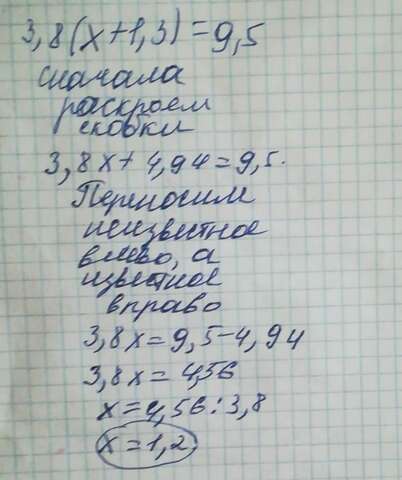 3,8(x+1,3)=9,5
сначала
раскроем
скобки
3,8x+4,94=9,5.
Переносим
неизвестное
влево, а
известное
вправо
3,8x=9,5-4,94
3,8x=4,56
x=4,56:3,8
x=1,2